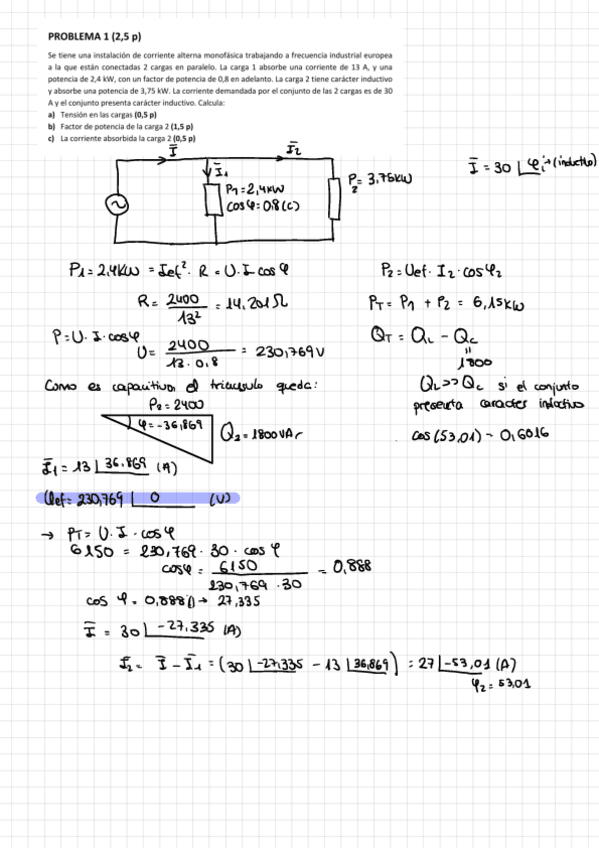 PROBLEMA 1 (2,5 p)
Se tiene una instalación de corriente alterna monofásica trabajando a frecuencia industrial europea
a la que están conectadas 2 cargas en paralelo. La carga 1 absorbe una corriente de 13 A, y una
potencia de 2,4 kW, con un factor de potencia de 0,8 en adelanto. La carga 2 tiene carácter inductivo
y absorbe una potencia de 3,75 kW. La corriente demandada por el conjunto de las 2 cargas es de 30
A y el conjunto presenta carácter inductivo. Calcula:
a) Tensión en las cargas (0,5 p)
b) Factor de potencia de la carga 2 (1,5 p)
c) La corriente absorbida la carga 2 (0,5 p)
I I2
I = 30 φi→(inductivo)
I1
P1=2,4kW
cosφ=0,8(c)
P2= 3,75kW
P1=2,4kW = Ief²·R = U·I cosφ
P2=Uef·I2·cosφ2
R= 2400/13² = 14,201Ω
PT= P1 + P2 = 6,15kW
P=U·I·cosφ
QT = QL - QC
U= 2400/13·0,8 = 230,769V
1800
Como es capacitivo, el triángulo queda:
QL>>QC si el conjunto
presenta caracter inductivo
P2=2400
φ=-36,869
Q2=1800VAr
cos(53,01)=0,6016
I1 = 13 36,869 (A)
Uef=230,769 0 (V)
→ PT= U·I·cosφ
6150 = 230,769·30·cosφ
cosφ= 6150/230,769·30 = 0,888
cosφ=0,888(i)→ 27,335
I = 30 -27,335 (A)
I2= I-I1 = (30 -27,335 - 13 36,869) = 27 -53,01 (A)
φ2=53,01